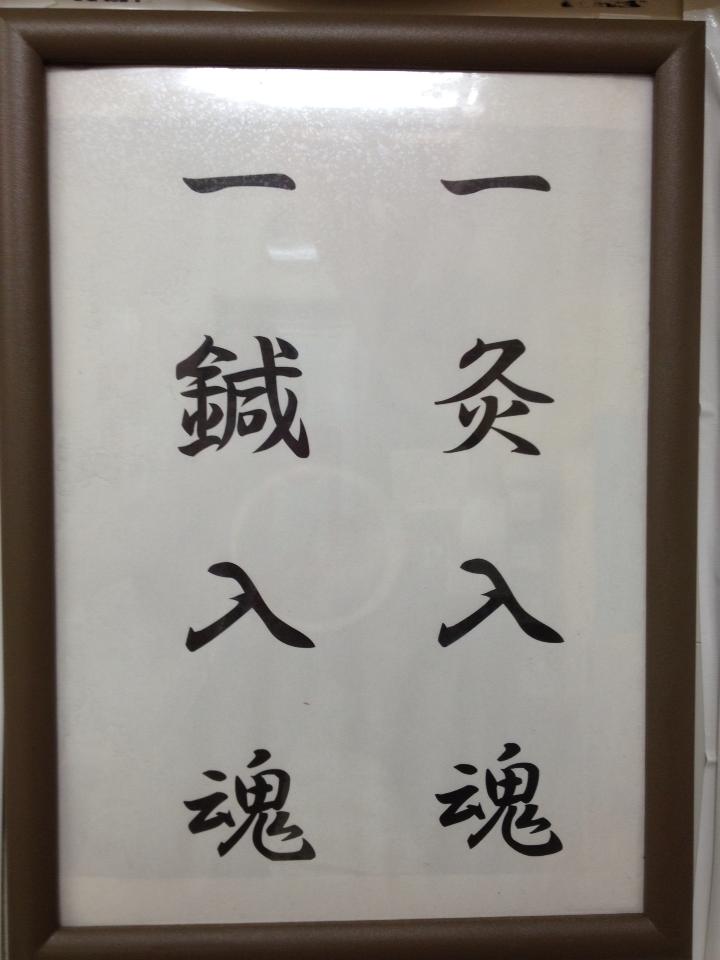 一灸入魂
一鍼入魂